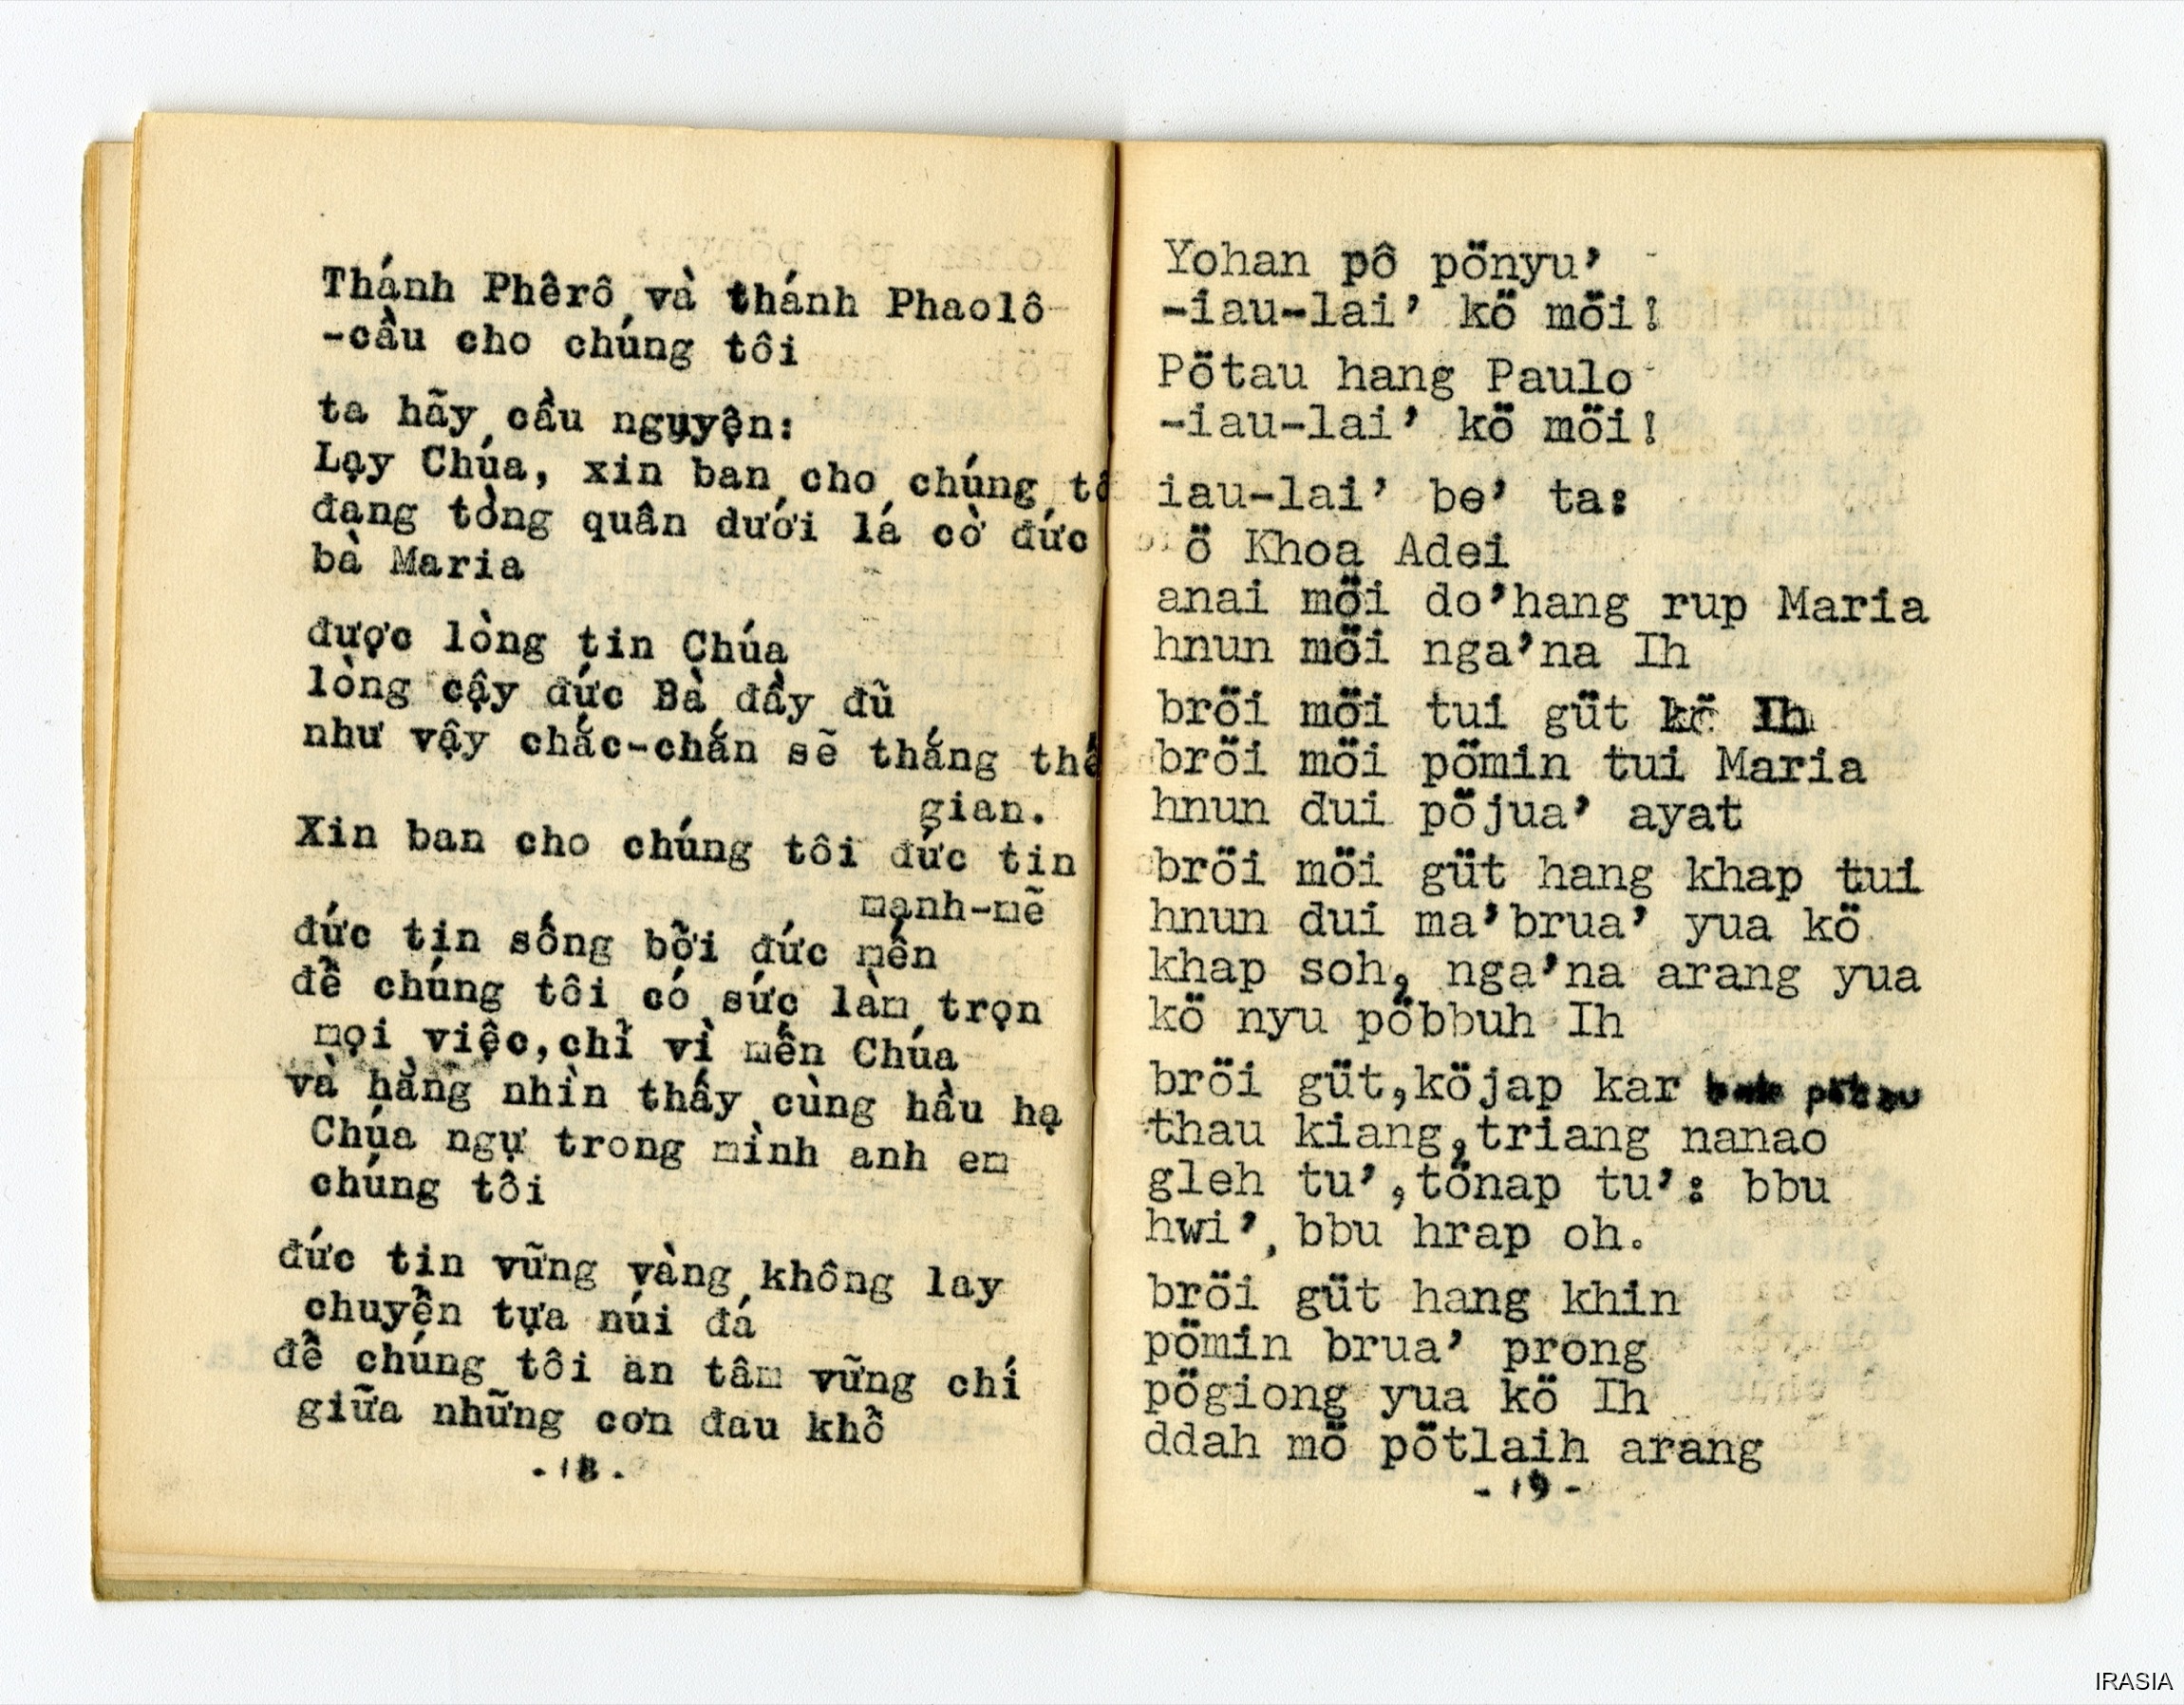 Thánh Phêrô và thánh Phaolô
-cầu cho chúng tôi
ta hãy cầu nguyện:
Lạy Chúa, xin ban cho chúng tô
đang tòng quân dưới lá cờ đức
bà Maria
được lòng tin Chúa
lòng cậy đức Bà đầy đủ
như vậy chắc-chắn sẽ thắng thế
gian.
Xin ban cho chúng tôi đức tin
mạnh-mẽ
đức tin sống bởi đức mến
để chúng tôi có sức làm trọn
mọi việc,chỉ vì mến Chúa
và hằng nhìn thấy cùng hầu hạ
Chúa ngự trong mình anh em
chúng tôi
đức tin vững vàng không lay
chuyển tựa núi đá
để chúng tôi an tâm vững chí
giữa những cơn đau khổ
-18-
Yohan pô pönyu'
-iau-lai' kö möi!
Pötau hang Paulo
-iau-lai' kö möi!
iau-lai' be' ta:
ö Khoa Adei
anai möi do'hang rup Maria
hnun möi nga'na Ih
bröi möi tui güt kö Ih
bröi möi pömin tui Maria
hnun dui pöjua' ayat
bröi möi güt hang khap tui
hnun dui ma'brua' yua kö
khap soh, nga'na arang yua
kö nyu pöbbuh Ih
bröi güt,köjap kar
thau kiang,triang nanao
gleh tu',tönap tu': bbu
hwi', bbu hrap oh.
bröi güt hang khin
pömin brua' prong
pögiong yua kö Ih
ddah mö pötlaih arang
-19-
IRASIA